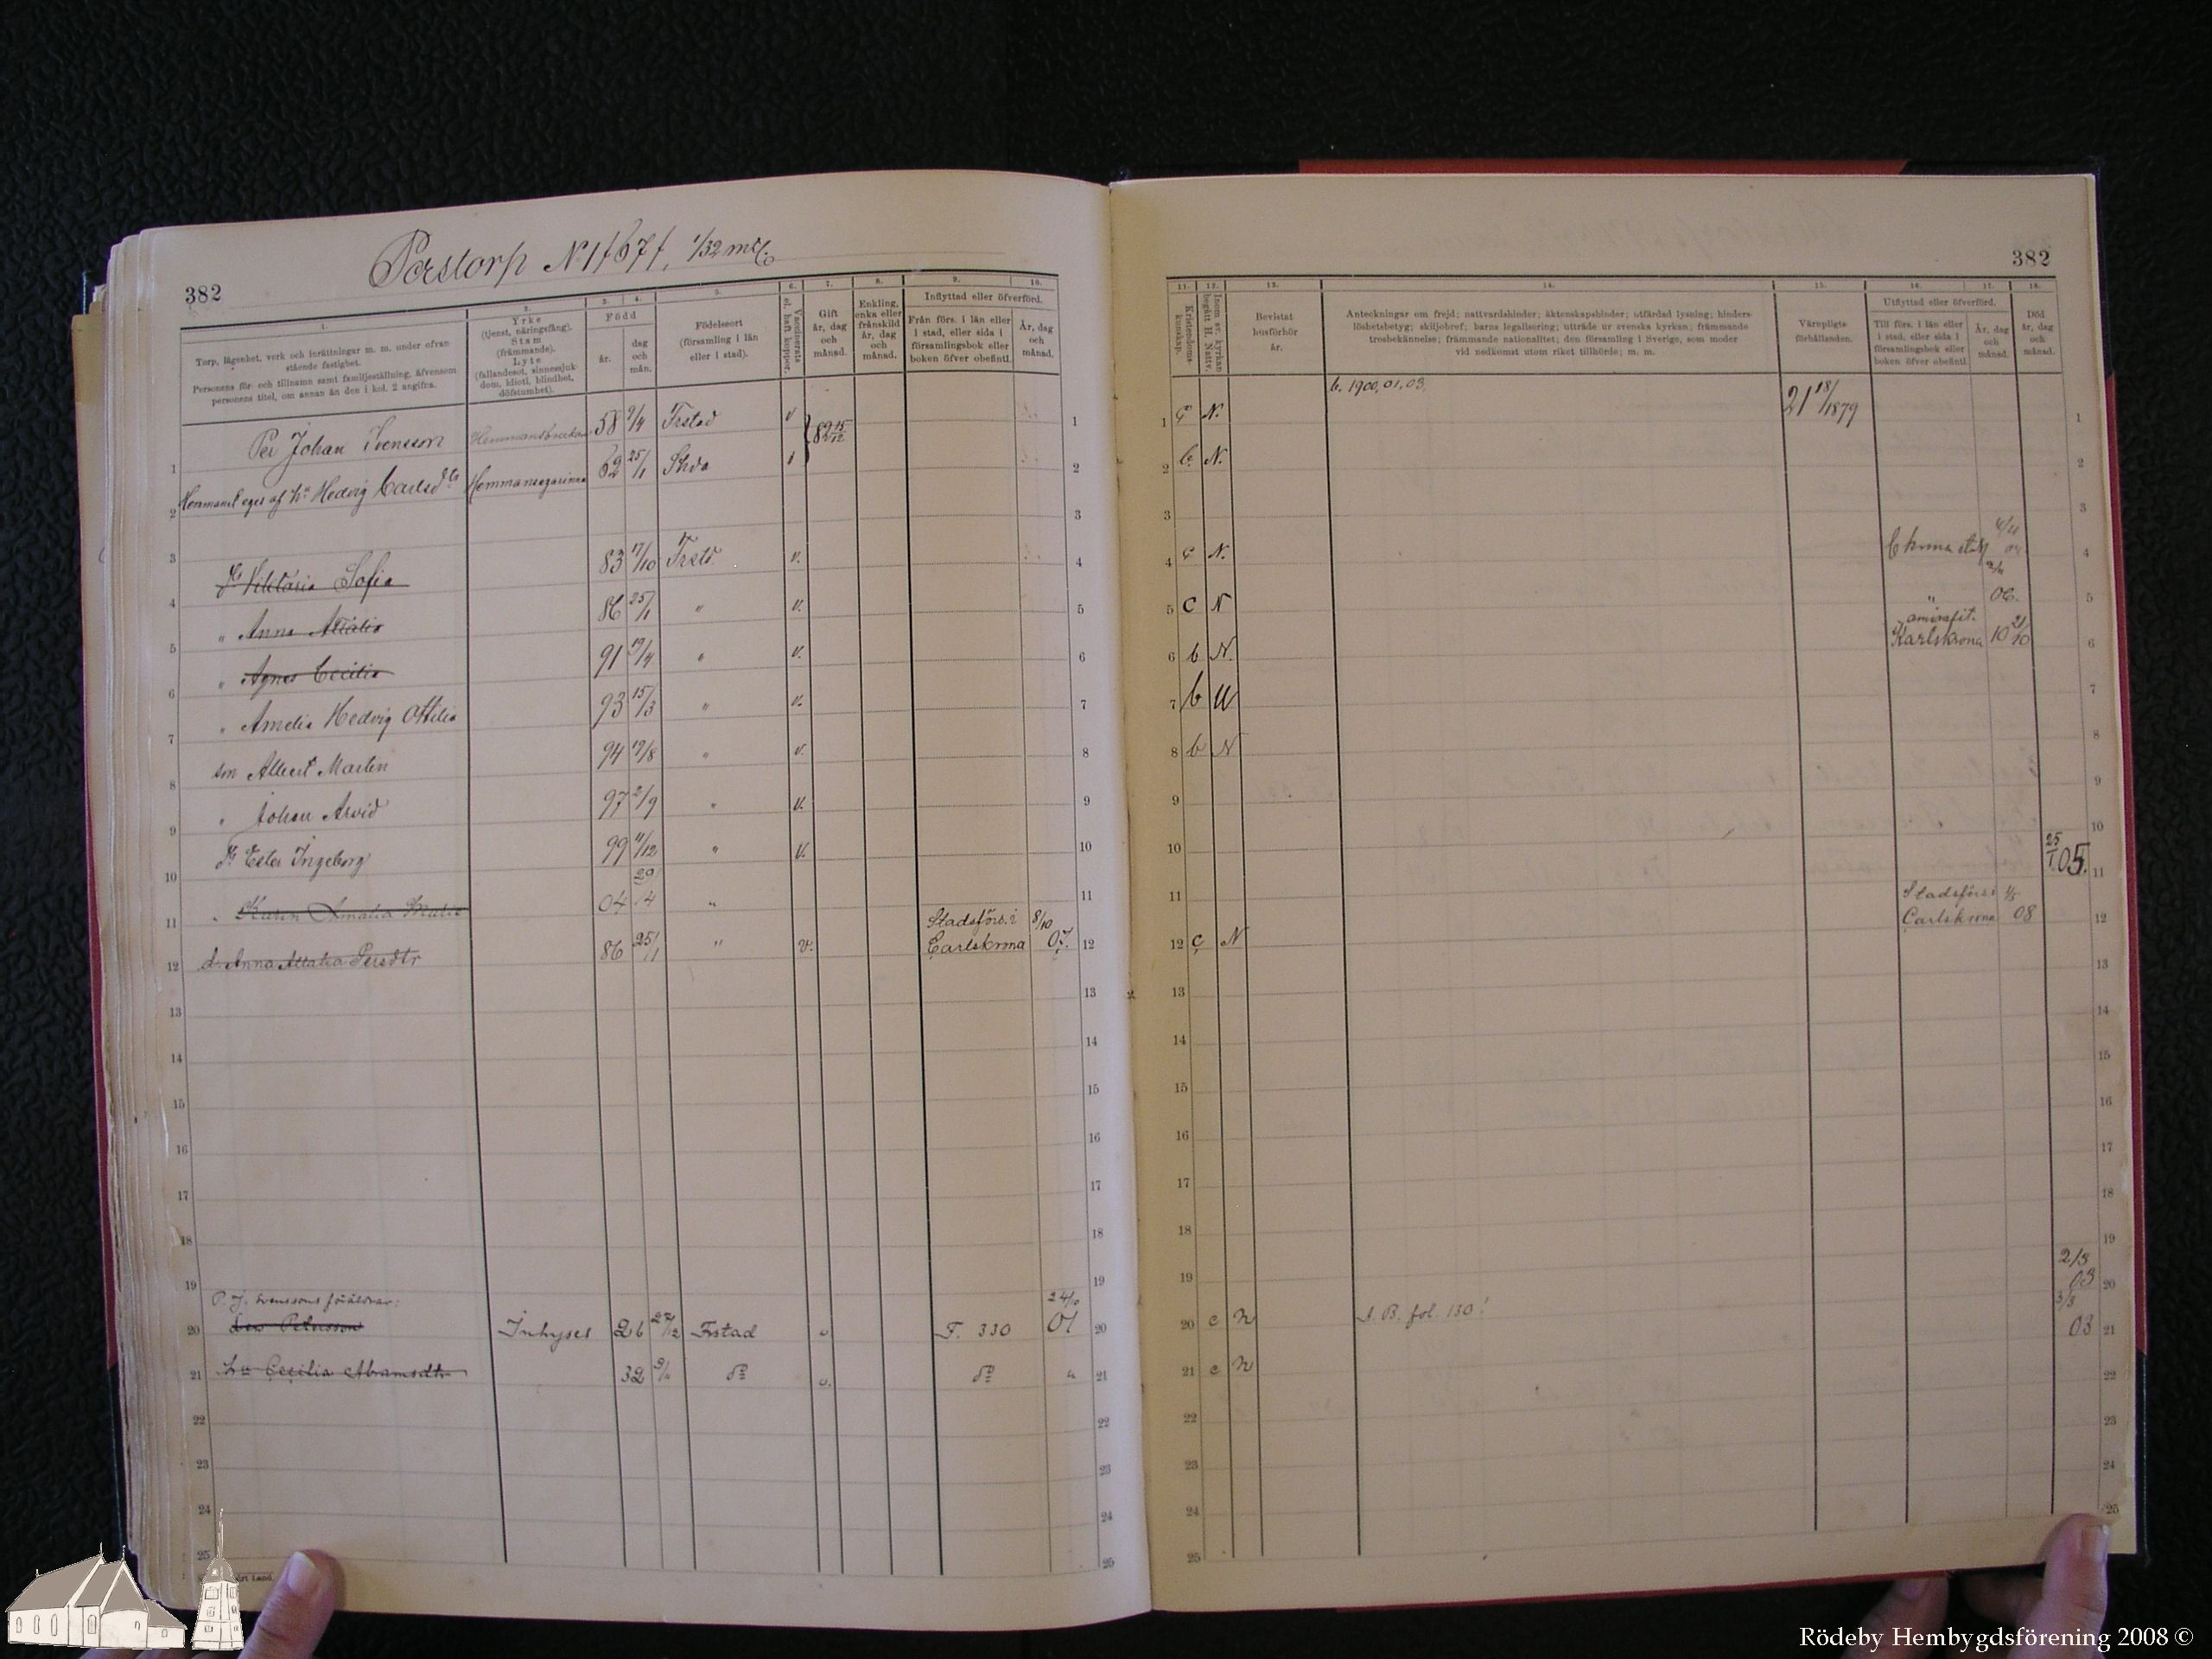 Perstorp N 1/67/, 1/32 mtl.
382
1.
Torp, lägenhet, verk och inrättningar m. m. under ofvan
stående fastighet.
Personens för- och tillnamn samt familjeställning, äfvensom
personens titel, om annan än den i kol. 2 angifna.
2.
Yrke
(tjenst, näringsfång).
Stam
(främmande).
Lyte
(fallandesot, sinnessjuk-
dom, idioti, blindhet,
döfstumhet).
3. 4.
Född
år.
dag
och
mån.
5.
Födelseort
(församling i län
eller i stad).
6.
Vaccinerats
el. haft koppor.
7.
Gift
år, dag
och
månad.
8.
Enkling,
enka eller
frånskild
år, dag
och
månad.
9. 10.
Inflyttad eller öfverförd.
Från förs. i län eller
i stad, eller sida i
församlingsbok eller
boken öfver obefintl.
År, dag
och
månad.
1 Per Johan Svensson 58 9/4 Frstad v
2 Hemmanet eges af hu Hedvig Carlsdtr Hemmansegarinna 62 25/1
3
4 Viktoria Sofia 83 17/10 Frstd. v.
5 " Anna Attalia 86 25/1 " v.
6 " Agnes Cecilia 91 19/4 " v.
7 " Amelia Hedvig Ottilia 93 15/3 " v.
8 son Albert Martin 94 19/8 " v.
9 " Johan Arvid 97 2/9 " v.
10 Ester Ingeborg 99 11/12 " v.
11 " Karin Amalia 04 29/4 "
12 d. Anna Attalia Persdtr 86 25/1 " v. Stadsförs. i Carlskrona 8/10 07.
13
14
15
16
17
18
19
P. J. Svenssons föräldrar:
20 Petersson Inhyses 26 27/12 Frstad v F. 330 24/10 01
21 hu Cecilia Abramsdtr 32 do v. do "
22
23
24
25
382
11.
Kristendoms-
kunskap.
12.
Inom sv. kyrkan
begått H. Nattv.
13.
Bevistat
husförhör
år.
14.
Anteckningar om frejd; nattvardshinder; äktenskapshinder; utfärdad lysning; hinders-
löshetsbetyg; skiljobref; barns legalisering; utträde ur svenska kyrkan; främmande
trosbekännelse; främmande nationalitet; den församling i Sverige, som moder
vid nedkomst utom riket tillhörde; m. m.
15.
Värnplikts-
förhållanden.
16. 17.
Utflyttad eller öfverförd.
Till förs. i län eller
i stad, eller sida i
församlingsbok eller
boken öfver obefintl.
År, dag
och
månad.
18.
Död
år, dag
och
månad.
1 c N. b. 1900, 01, 03. 21 18/1879
2 b. N.
3
4 c N. Ckrona stadsf
5 c N " 06.
6 b N. amiralit. Karlskrona 10 21/10
7 b U
8 b N
9
10
11 25/1 05.
12 c N Stadsförs i Carlskrona 08
13
14
15
16
17
18
19
20 c n S. B. fol. 130! 2/3 03
21 c n 3/3 03
22
23
24
25
Rödeby Hembygdsförening 2008 ©